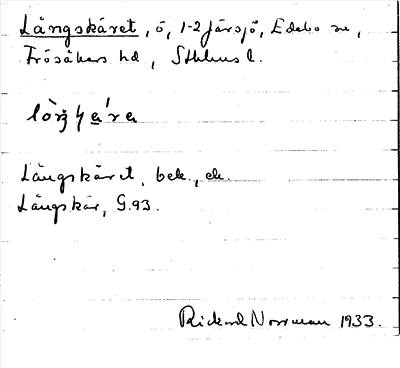 Långskäret, ö, 1-2 Järsjö, Edebo sn,
Frösåkers hd, Sthlms l.
Långskäret, bek., ek.
Långskär, G.93.
Rickard Norrman 1933.